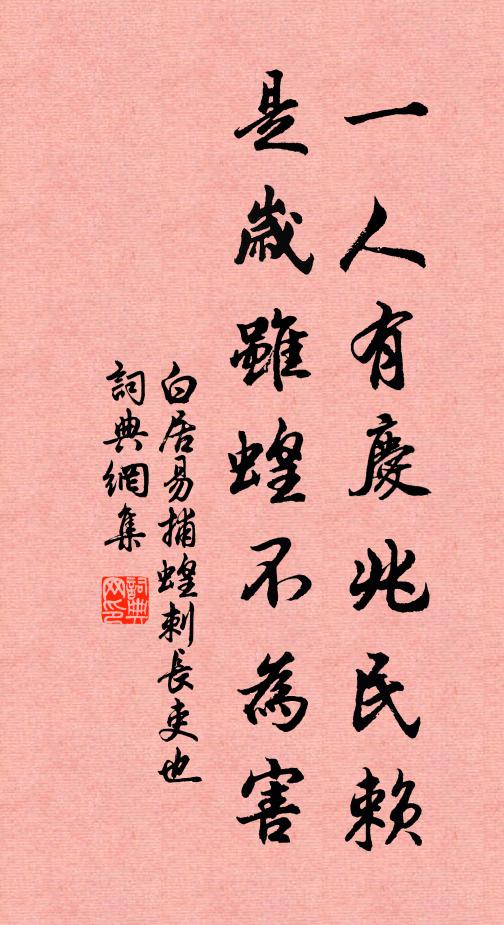 一人有慶兆民賴
是歲雖蝗不為害
白居易捕蝗刺長吏也
詞典網集
詞典
网印